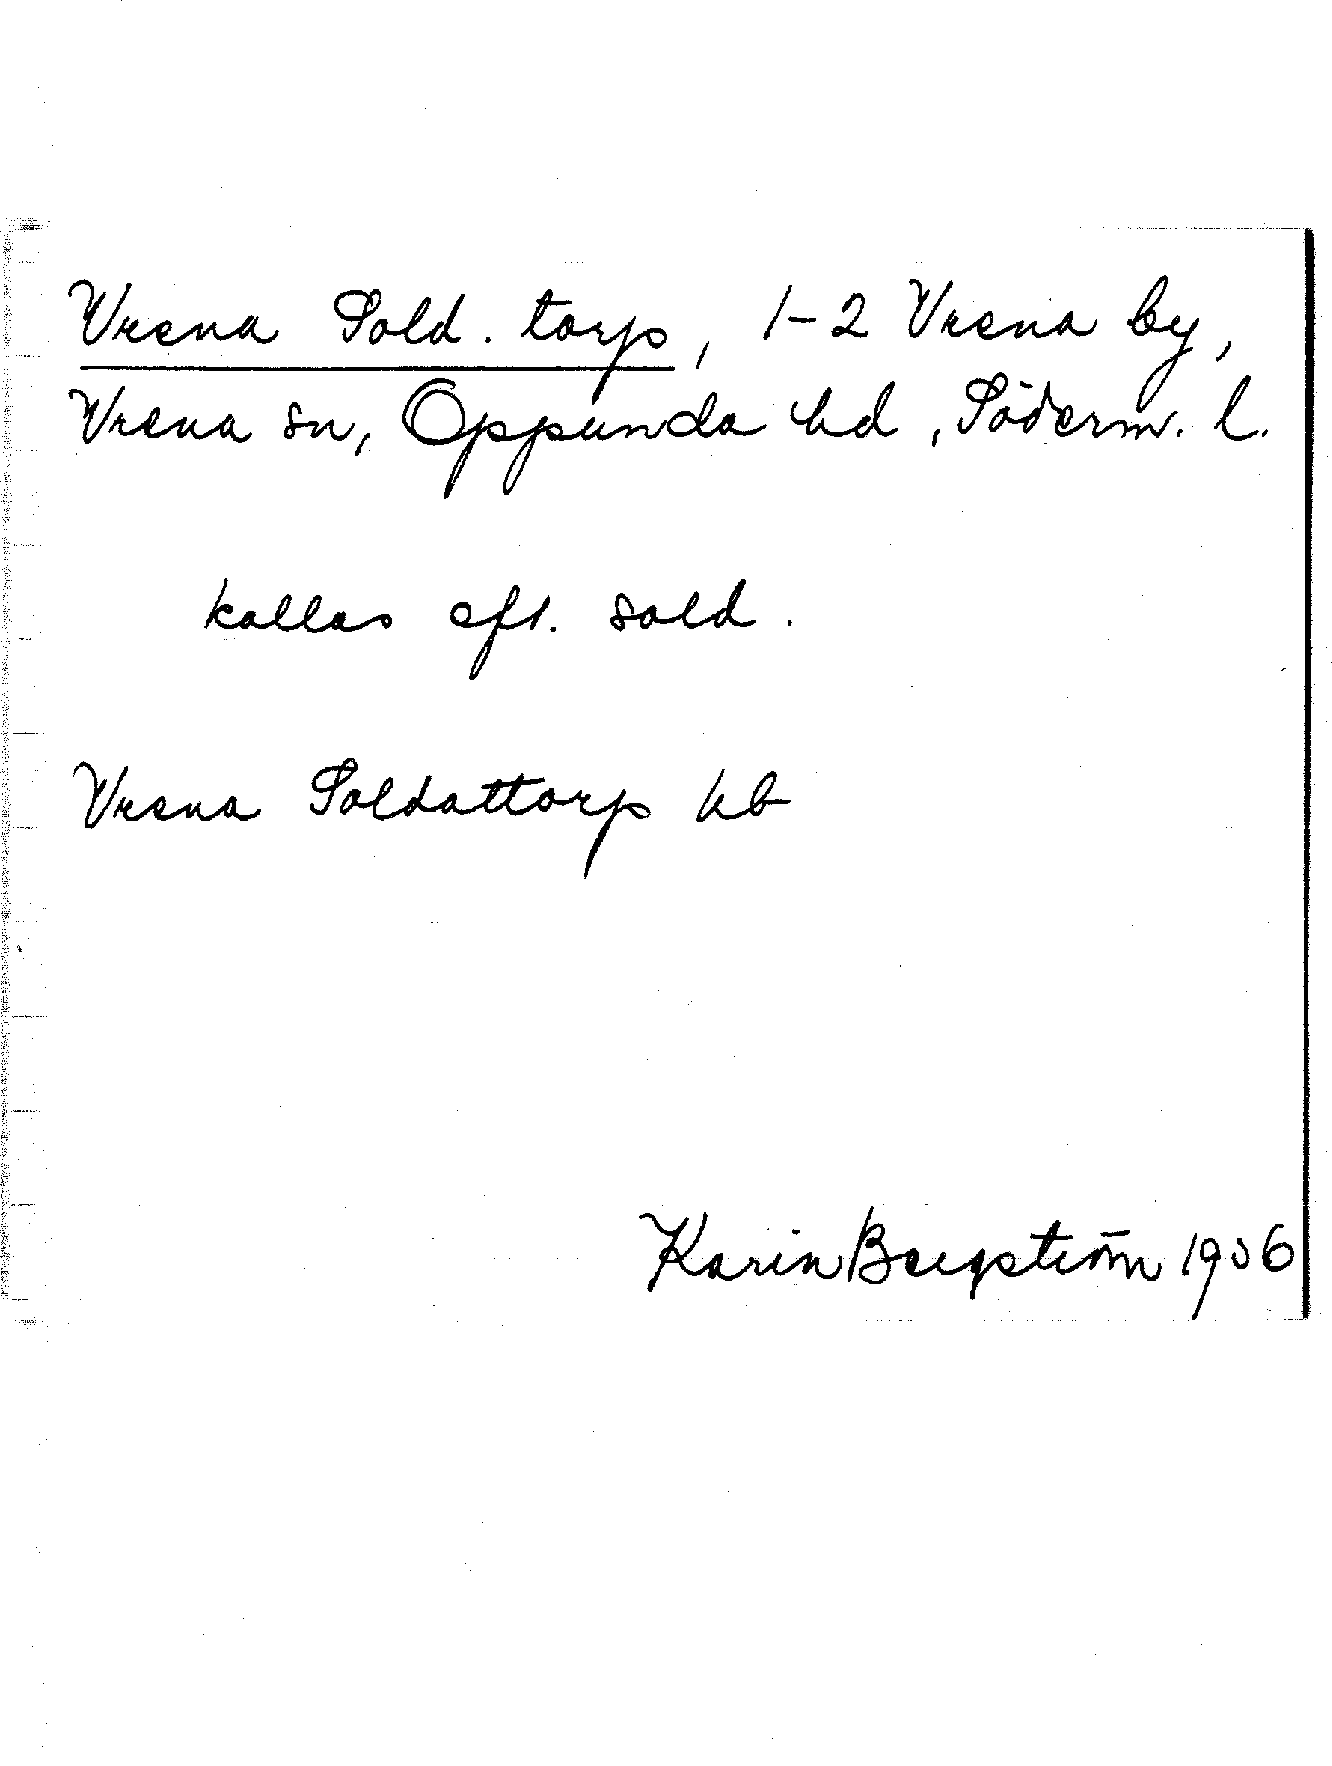 Vrena Sold. torp, 1-2 Vrena by,
Vrena sn, Oppunda hd, Söderm. l.
kallas eft. sold.
Vrena Soldattorp kb
Karin Bergström 1936